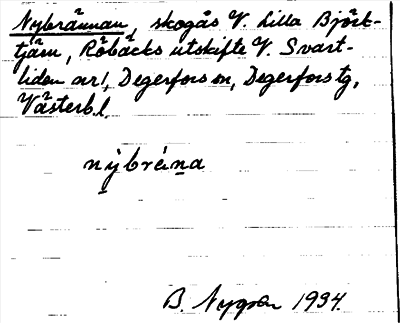 Nybrännan, skogås V. Lilla Björk-
tjärn, Röbäcks utskifte V. Svart-
liden ar!, Degerfors sn, Degerfors tg,
Västerb.l.
nybrána
B. Nygren 1934.